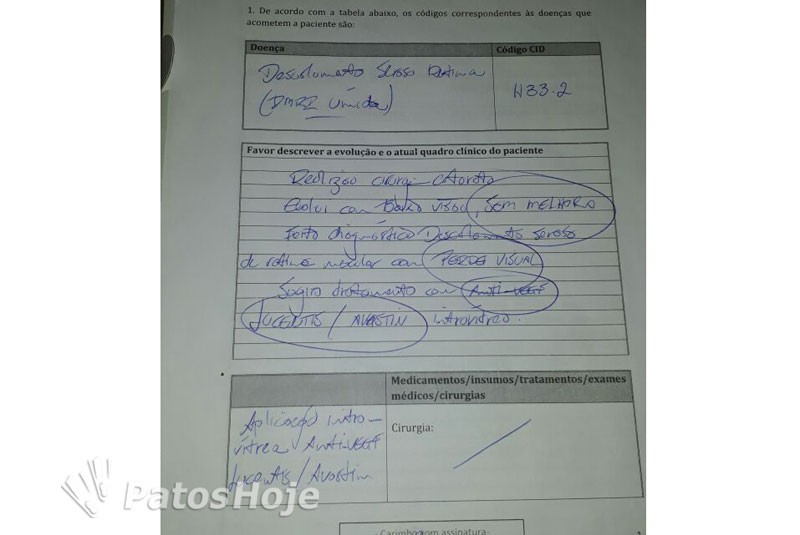 1. De acordo com a tabela abaixo, os códigos correspondentes às doenças que
acometem a paciente são:
Doença
Código CID
Descolamento Seroso Retina
(DMRI Úmida)
H33.2
Favor descrever a evolução e o atual quadro clínico do paciente
Realizou cirurgia catarata
Evolui com Baixa visual, SEM MELHORA
Feito diagnóstico Descolamento seroso
de retina macular com PERDA VISUAL
Sugiro tratamento com Anti-VEGF
LUCENTIS / AVASTIN intravítreo.
Medicamentos/insumos/tratamentos/exames
médicos/cirurgias
Aplicação intra-
vítrea Anti-VEGF
Lucentis / Avastin
Cirurgia:
Carimbo com assinatura
PatosHoje